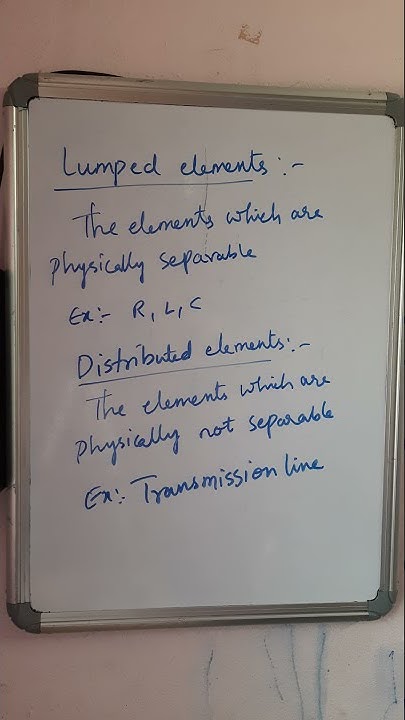 Lumped elements:-
The elements which are
physically separable
Ex:- R, L, C
Distributed elements:-
The elements which are
physically not separable
Ex:- Transmission line